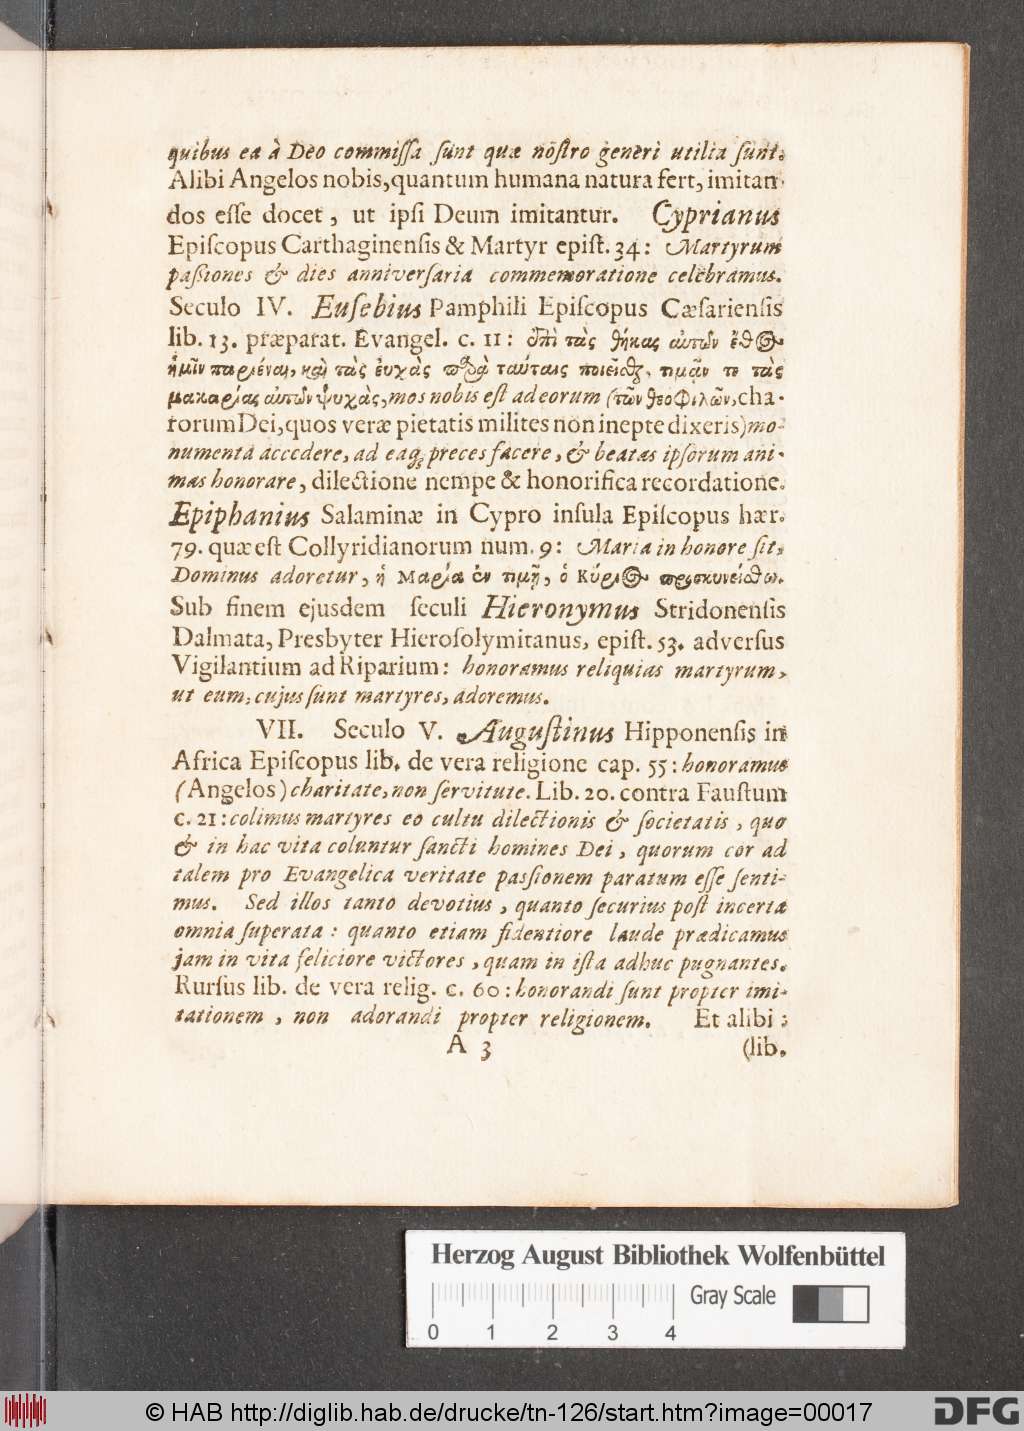 quibus ea à Deo commiſſa ſunt quæ noſtro generi utilia ſunt.
Alibi Angelos nobis, quantum humana natura fert, imitan-
dos eſſe docet, ut ipſi Deum imitantur. Cyprianus
Epiſcopus Carthaginenſis & Martyr epiſt. 34: Martyrum
paſsiones & dies anniverſaria commemoratione celebramus.
Seculo IV. Euſebius Pamphili Epiſcopus Cæſarienſis
lib. 13. præparat. Evangel. c. 11: ὅθεν ἐπὶ τὰς θήκας αὐτῶν ἔθος
ἡμῖν παριέναι, καὶ τὰς ἐυχὰς παρὰ ταύταις ποιεῖσθαι, τιμᾶν τε τὰς
μακαρίας αὐτῶν ψυχὰς, mos nobis eſt ad eorum (τῶν θεοφιλῶν, cha-
rorum Dei, quos veræ pietatis milites non inepte dixeris) mo-
numenta accedere, ad eaq; preces facere, & beatas ipſorum ani-
mas honorare, dilectione nempe & honorifica recordatione.
Epiphanius Salaminæ in Cypro inſula Epiſcopus hær.
79. quæ eſt Collyridianorum num. 9: Maria in honore ſit,
Dominus adoretur, ἡ Μαρία ἐν τιμῇ, ὁ Κύριος προσκυνείσθω.
Sub finem ejusdem ſeculi Hieronymus Stridonenſis
Dalmata, Presbyter Hieroſolymitanus, epiſt. 53. adverſus
Vigilantium ad Riparium: honoramus reliquias martyrum,
ut eum, cujus ſunt martyres, adoremus.
VII. Seculo V. Auguſtinus Hipponenſis in
Africa Epiſcopus lib. de vera religione cap. 55: honoramus
(Angelos) charitate, non ſervitute. Lib. 20. contra Fauſtum
c. 21: colimus martyres eo cultu dilectionis & ſocietatis, quo
& in hac vita coluntur ſancti homines Dei, quorum cor ad
talem pro Evangelica veritate paſsionem paratum eſſe ſenti-
mus. Sed illos tanto devotius, quanto ſecurius poſt incerta
omnia ſuperata: quanto etiam fidentiore laude prædicamus
jam in vita feliciore victores, quam in iſta adhuc pugnantes.
Rurſus lib. de vera relig. c. 60: honorandi ſunt propter imi-
tationem, non adorandi propter religionem. Et alibi;
A 3 (lib.
Herzog August Bibliothek Wolfenbüttel
Gray Scale
0 1 2 3 4
© HAB http://diglib.hab.de/drucke/tn-126/start.htm?image=00017
DFG